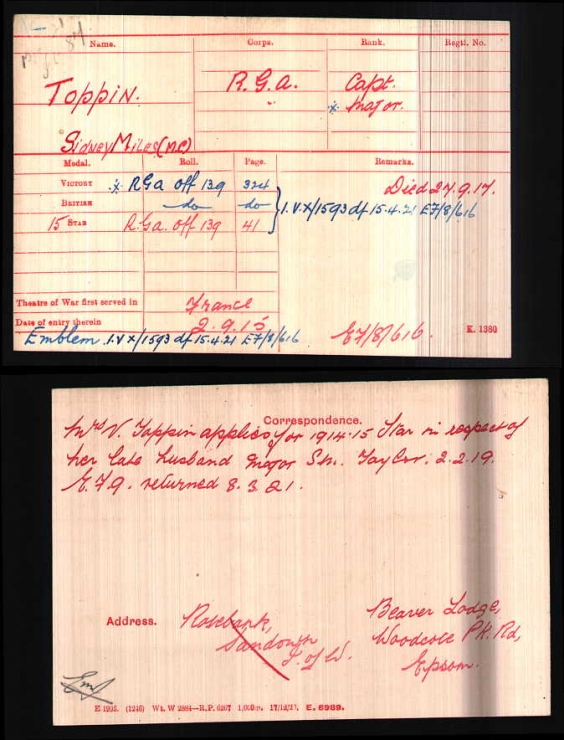 Name. Corps. Rank. Regtl. No.
Toppin. R.G.A. Capt.
" × Major.
Sidney Miles (M.C)
Medal. Roll. Page. Remarks.
Victory × RGA off 139 324 Died 27.9.17.
British do do I.V.X/1593 df 15.4.21 E7/8/616
15 Star R.G.A. off 139 41
Theatre of War first served in France
Date of entry therein 2.9.15 E7/8/616 K. 1380
Emblem I.V.X/1593 df 15.4.21 E7/8/616
Correspondence.
Mrs V. Toppin applies for 1914-15 Star in respect of
her late husband Major S.M. Taylor. 2.2.19.
returned 8.3.21.
Address. Rosebank, Beaver Lodge,
Sandown Woodcote Pk. Rd,
I. of W. Epsom.
E 1995. (1246) Wt. W 2884—R.P. 6207 1,000m. 17/12/17. E. 6989.